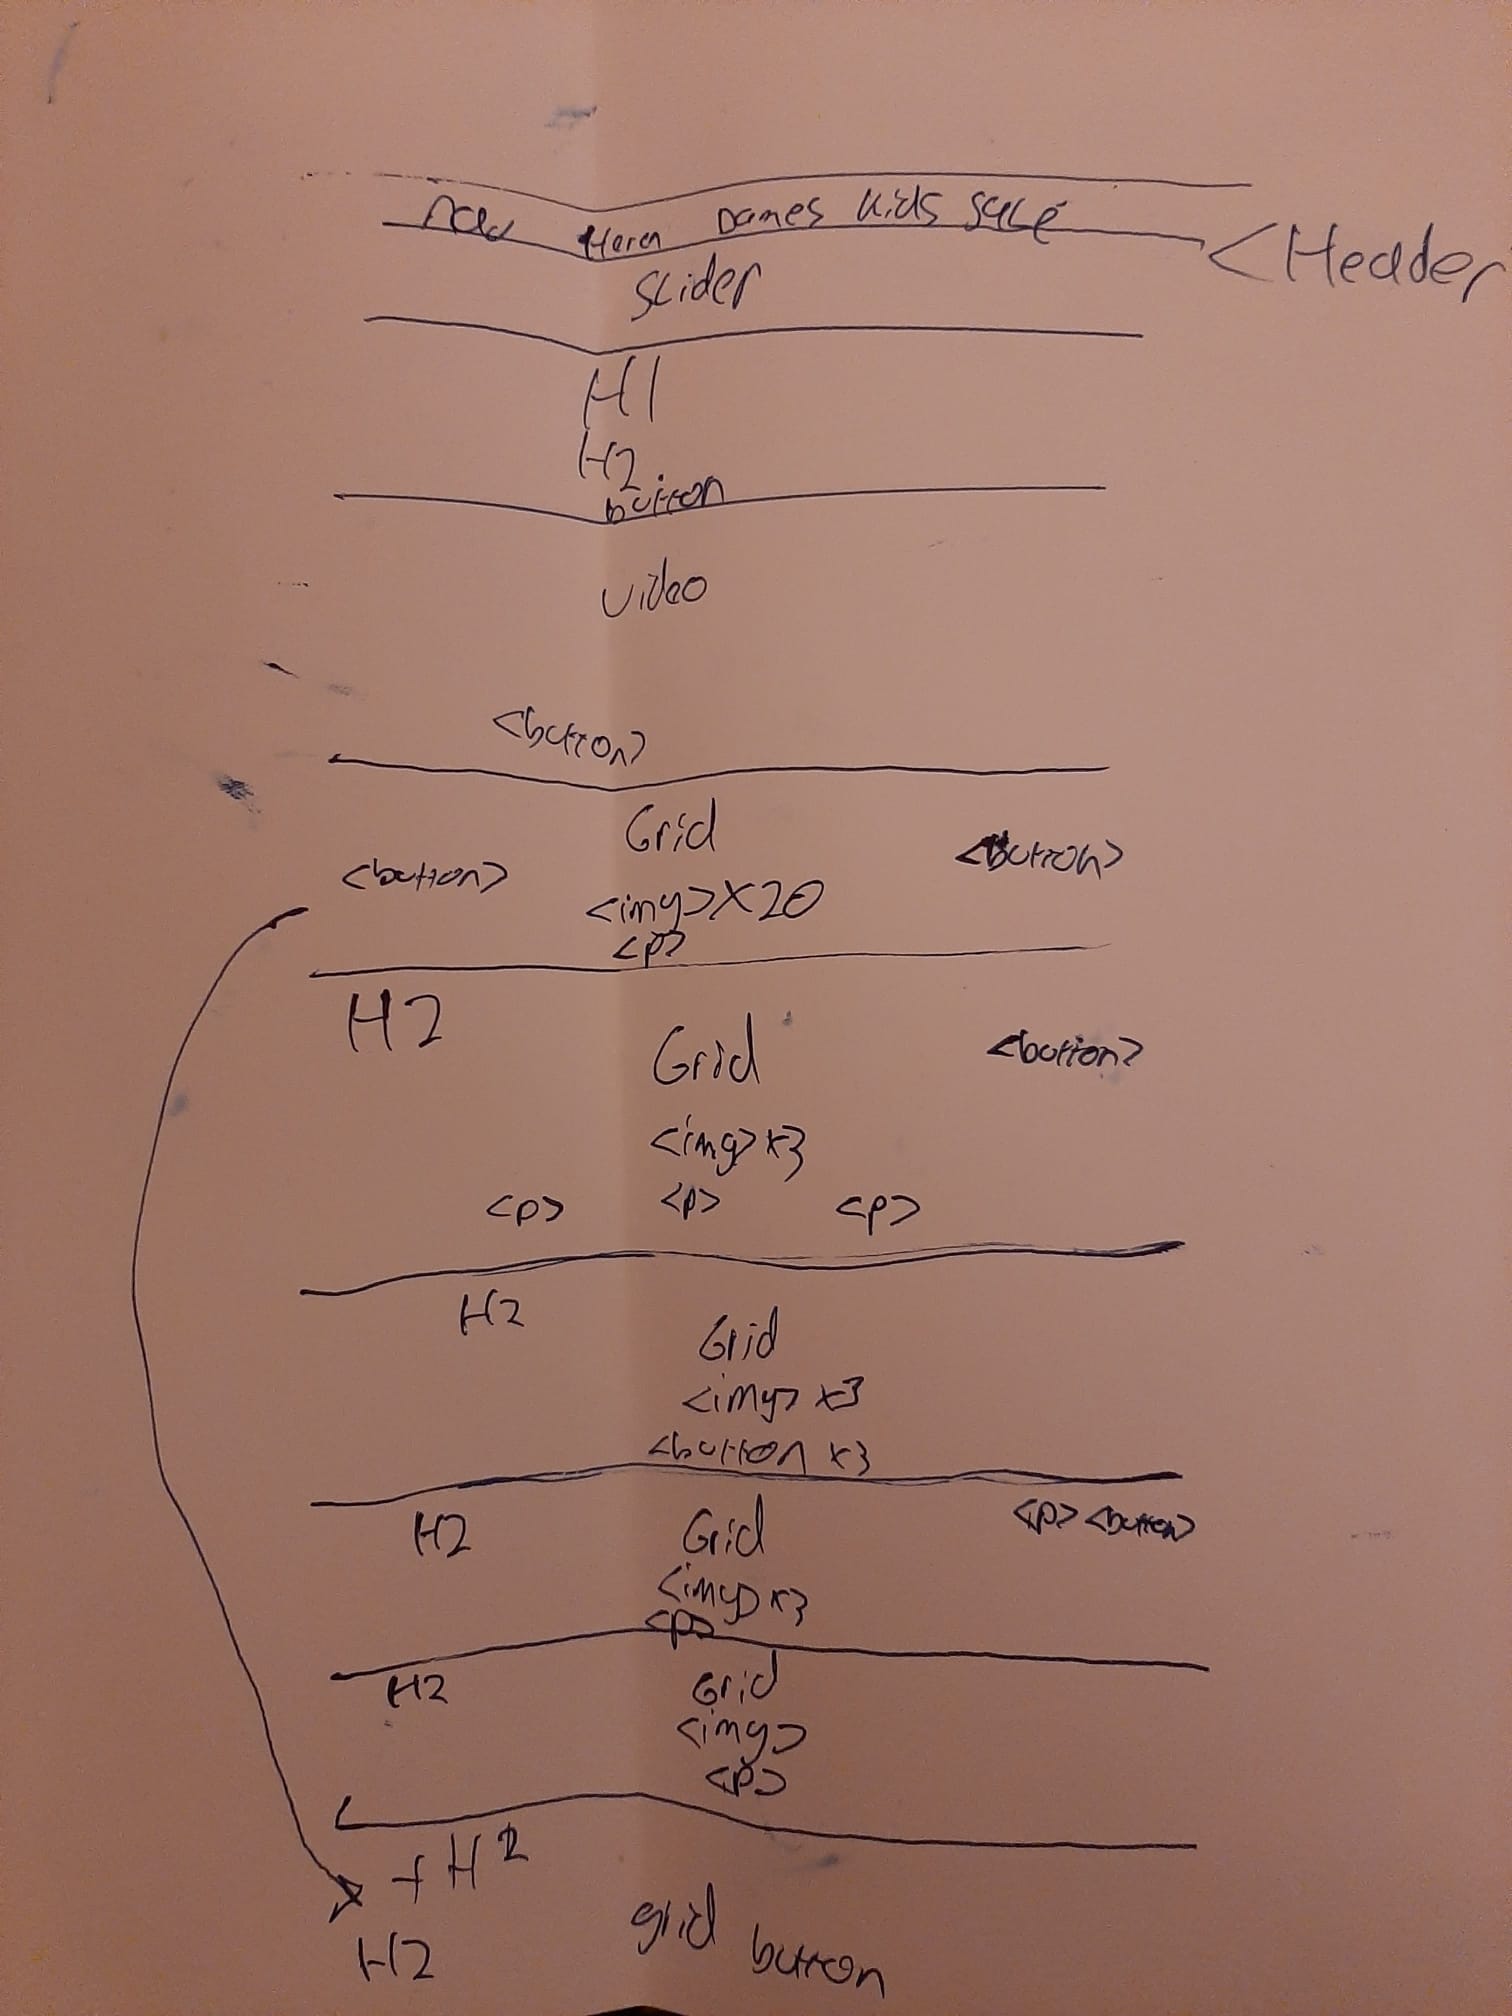 new Heren Dames kids sale
<Header
Slider
H1
H2
button
video
<button>
Grid
<button> <button>
<img>x20
<p>
H2 Grid <button>
<img>x3
<p> <p> <p>
H2 Grid
<img> x3
<button x3
H2 Grid <p> <button>
<img>x3
<p>
H2 Grid
<img>
<p>
+ H2
H2 grid button